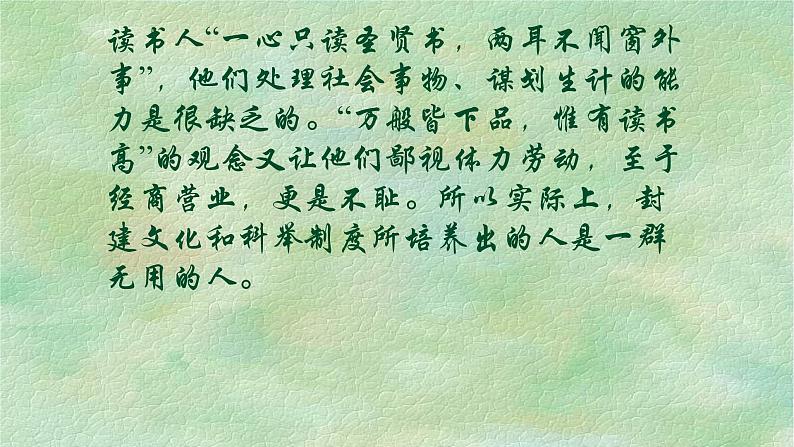 读书人“一心只读圣贤书，两耳不闻窗外
事”，他们处理社会事物、谋划生计的能
力是很缺乏的。“万般皆下品，惟有读书
高”的观念又让他们鄙视体力劳动，至于
经商营业，更是不耻。所以实际上，封
建文化和科举制度所培养出的人是一群
无用的人。